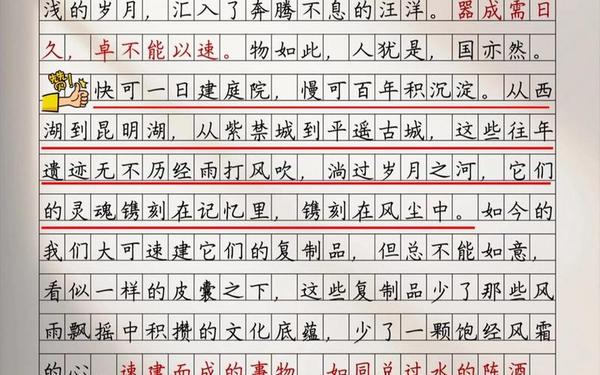 浅的岁月，汇入了奔腾不息的汪洋。器成需日
久，卓不能以速。物如此，人犹是，国亦然。
赞!
快可一日建庭院，慢可百年积沉淀。从西
湖到昆明湖，从紫禁城到平遥古城，这些往年
遗迹无不历经雨打风吹，淌过岁月之河，它们
的灵魂镌刻在记忆里，镌刻在风尘中。如今的
我们大可速建它们的复制品，但总不能如意，
看似一样的皮囊之下，这些复制品少了那些风
雨飘摇中积攒的文化底蕴，少了一颗饱经风霜
的心。速建而成的事物，如同兑过水的陈酒，